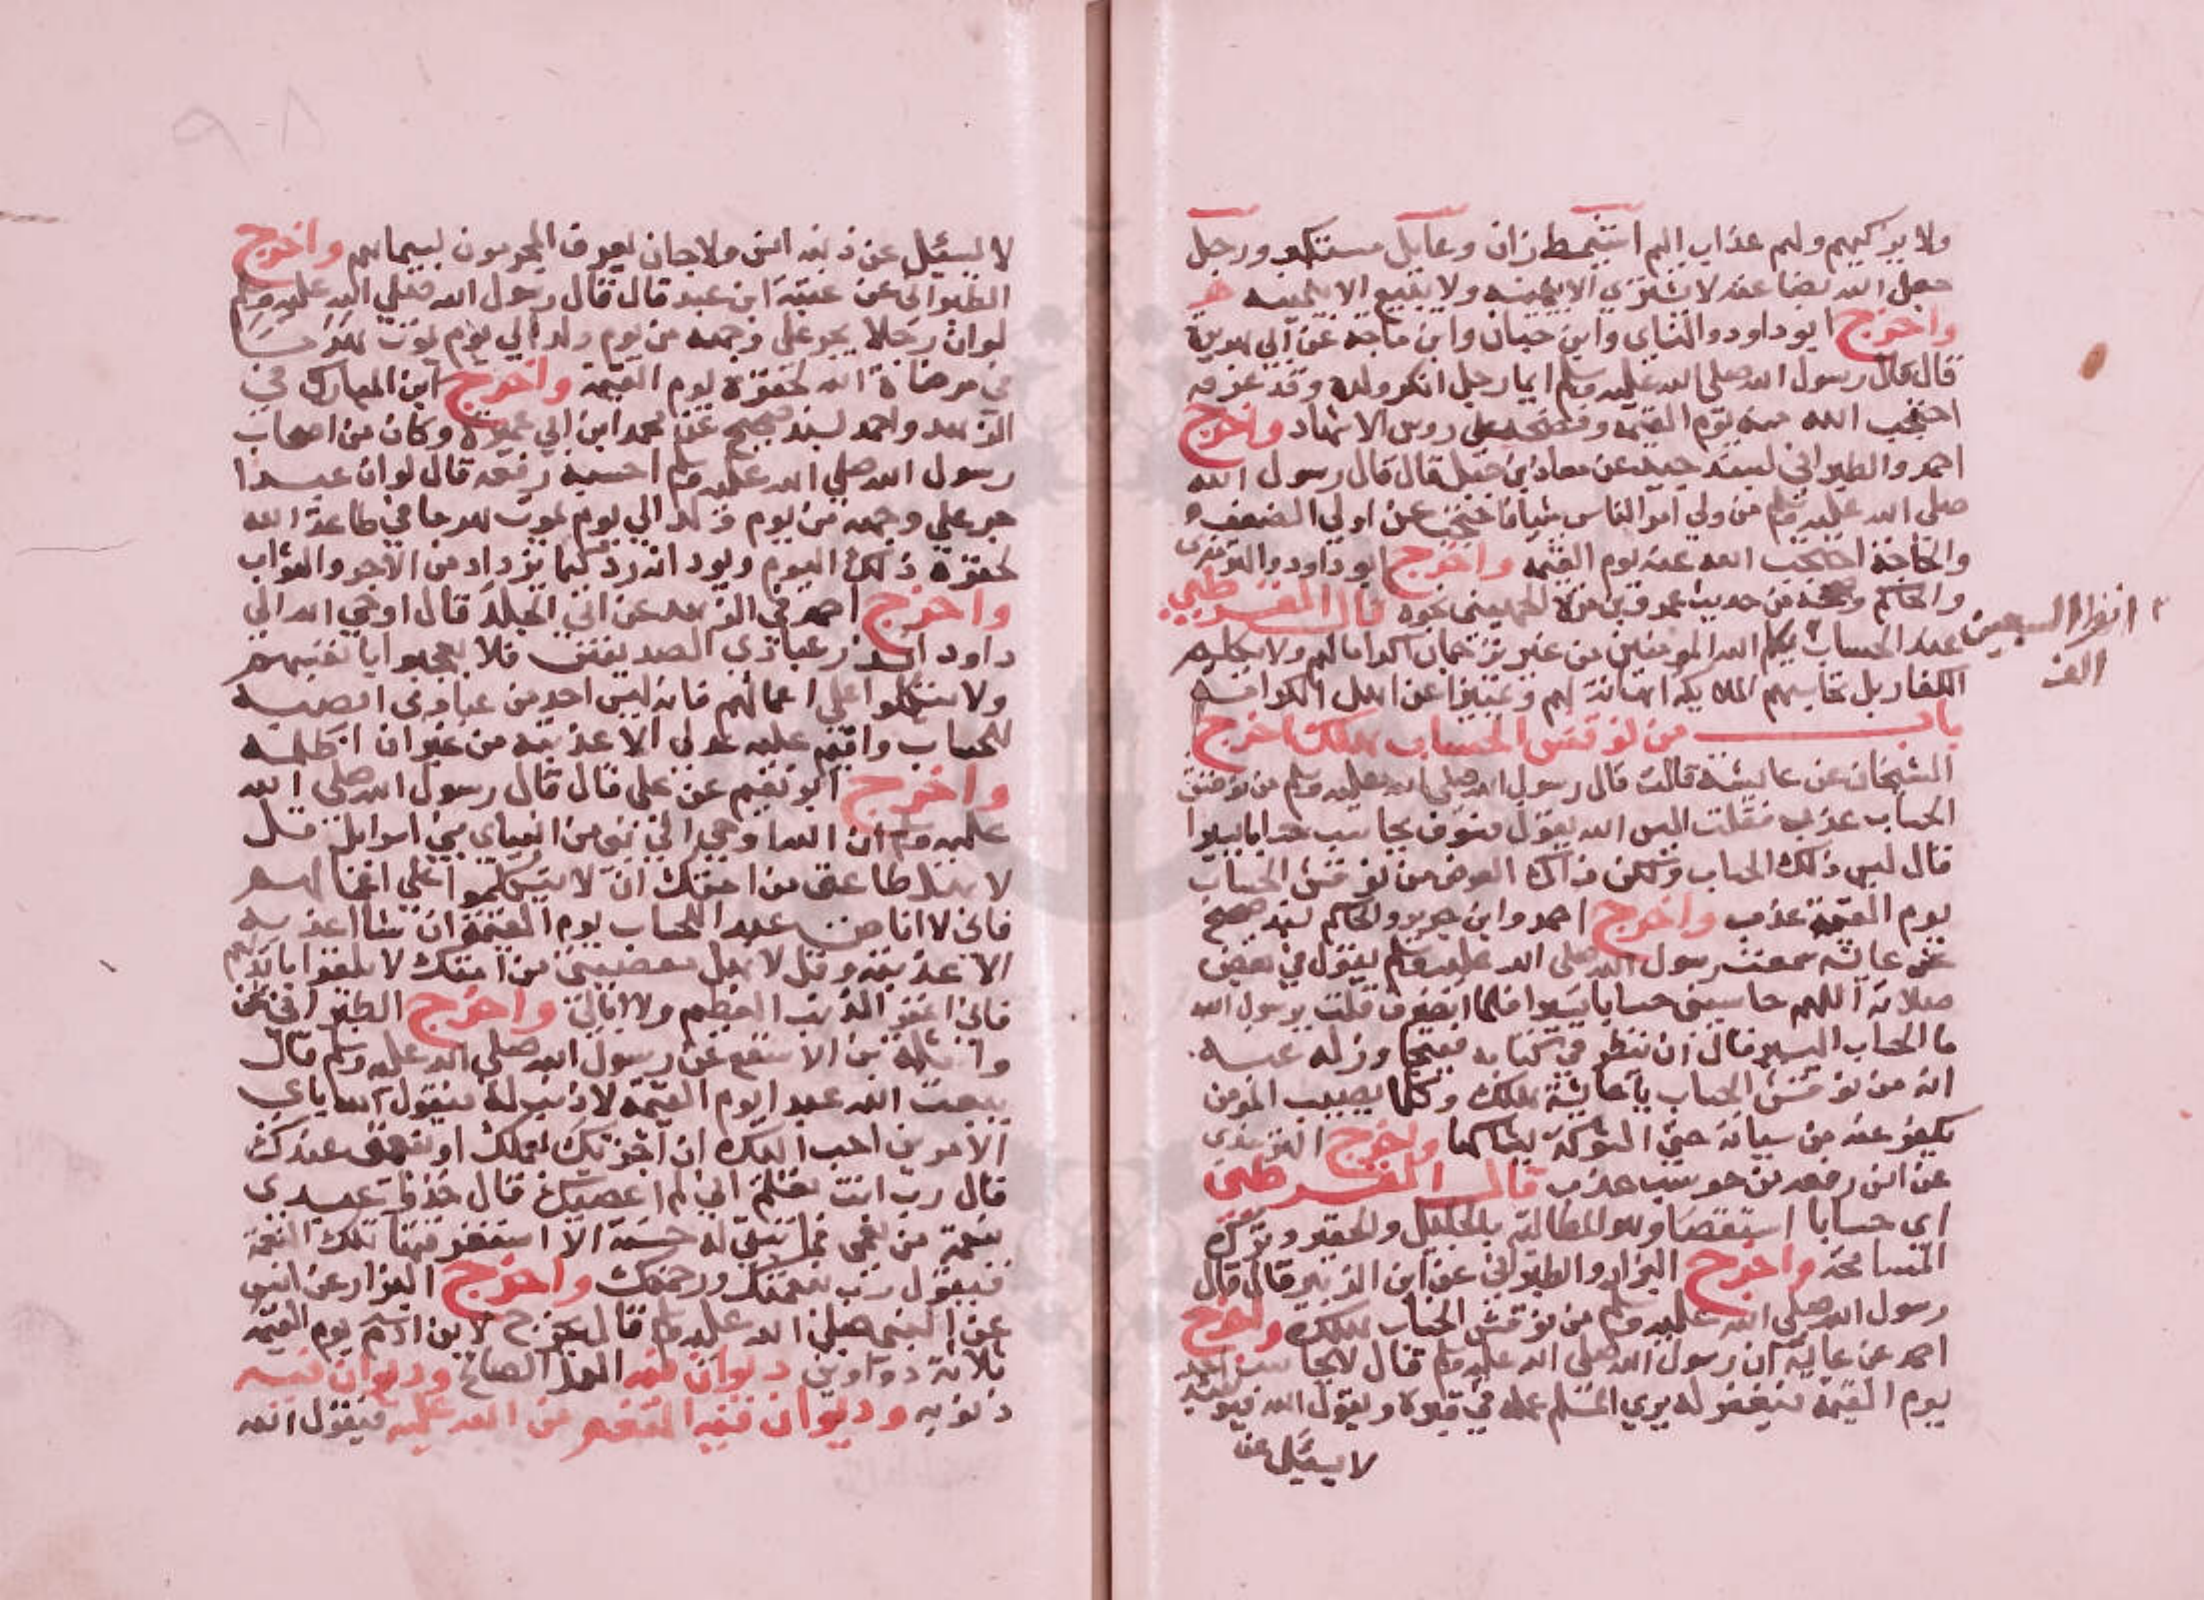 ولا يزكيهم ولهم عذاب اليم اشيمط زان وعايل مستكبر ورجل
جعل الله بضاعة لا يشتري الا بيمينه ولا يبيع الا بيمينه
واخرج ابو داود والنساى وابن حبان وابن ماجه عن ابي هريرة
قال قال رسول الله صلي الله عليه وسلم ايما رجل انكر ولده وقد عرفه
احتجب الله منه يوم القيمة وفضحه على روس الاشهاد واخرج
احمد والطبراني بسند جيد عن معاذ بن جبل قال قال رسول الله
صلي الله عليه وسلم من ولي امر الناس شيا فاحتجب عن اولي الضعف
والحاجة احتجب الله عنه يوم القيمه واخرج ابو داود والترمذى
والحاكم وصححه من حديث عمرو بن مرة الجهيني نحوه قال القرطبي
عند الحساب يكلم الله المومنين من غير ترجمان اكراما لهم ولا يكلم
الكفار بل تحاسبهم الملايكة اهانة لهم وتمييزا عن اهل الكرامة
باب من نوقش الحساب هلك اخرج
الشيخان عن عايشة قالت قال رسول الله صلي الله عليه وسلم من نوقش
الحساب عذب فقلت اليس الله يقول فسوف يحاسب حسابا يسيرا
قال ليس ذلك الحساب ولكن ذاك العرض من نوقش الحساب
يوم القيمة عذب واخرج احمد وابن جرير والحاكم بسند صحيح
عن عايشه سمعت رسول الله صلى الله عليه وسلم يقول في بعض
صلاته اللهم حاسبني حسابا يسيرا فلما انصرف قلت يرسول الله
ما الحساب اليسير قال ان ينظر في كتابه فيتجاوز له عنه
انه من نوقش الحساب يا عايشة هلك وكلما يصيب المومن
يكفر عنه من سياته حتى الشوكة يشاكها واخرج الترمذى
عن انس رفعه من حوسب عذب قال القرطبي
اى حسابا استقصا وهو المطالبة بالجليل والحقير وترك
المسامحة واخرج البزار والطبراني عن ابن الزبير قال قال
رسول الله صلى الله عليه وسلم من نوقش الحساب هلك واخرج
احمد عن عايشة ان رسول الله صلى الله عليه وسلم قال لا يحاسب احد
يوم القيمة فيغفر له يري المسلم عمله في قبره ويقول الله فيوميذ
لا يسئيل عن
انظر السبعين
الف
لا يسئيل عن ذنبه انس ولا جان يعرف المجرمون بسيماهم واخرج
الطبراني عن عتبة ابن عبد قال قال رسول الله صلي الله عليه وسلم
لو ان رجلا يجر علي وجهه من يوم ولد الي يوم يموت هرما
في مرضاة الله لحقره يوم القيمة واخرج ابن المبارك في
الزهد واحمد بسند صحيح عن محمد ابن ابي عميرة وكان من اصحاب
رسول الله صلي الله عليه وسلم احسبه رفعه قال لو ان عبدا
جر علي وجهه من يوم ولد الي يوم يموت هرما في طاعة الله
لحقره ذلك اليوم ويود انه رد كيما يزداد من الاجر والثواب
واخرج احمد في الزهد عن ابي الجلد قال اوحي الله الى
داود انذر عبادى الصديقين فلا يعجبوا بانفسهم
ولا يتكلوا علي اعمالهم فانه ليس احد من عبادى انصبه
للحساب واقيم عليه عدلي الا عذبته من غير ان اظلمه
واخرج ابو نعيم عن علي قال قال رسول الله صلى الله
عليه وسلم ان الله اوحي الى نبي من انبياى بني اسرايل قل
لاهل طاعتى من امتك ان لا يتكلموا علي اعمالهم
فاني لا اناصب عبد الحساب يوم القيمة ان شا اعذبه
الا عذبته وقل لاهل معصيتي من امتك لا يلقوا بايديهم
فاني اغفر الذنب العظيم ولا ابالي واخرج الطبراني عن
واثلة بن الاسقع عن رسول الله صلي الله عليه وسلم قال
يبعث الله عبدا يوم القيمة لا ذنب له فيقول الله باى
الامرين احب اليك ان اجزيك بعملك او بنعمتى عندك
قال رب انت تعلم اني لم اعصيك قال خذوا عبدى
بنعمة من نعمى فما تبقي له حسنة الا استغفرقتها تلك النعمة
فيقول رب بنعمتك ورحمتك واخرج البزار عن انس
عن النبي صلي الله عليه وسلم قال يخرج لابن ادم يوم القيمه
ثلاثة دواوين ديوان فيه العمل الصالح وديوان فيه
ذنوبه وديوان فيه النعم من الله عليه فيقول الله